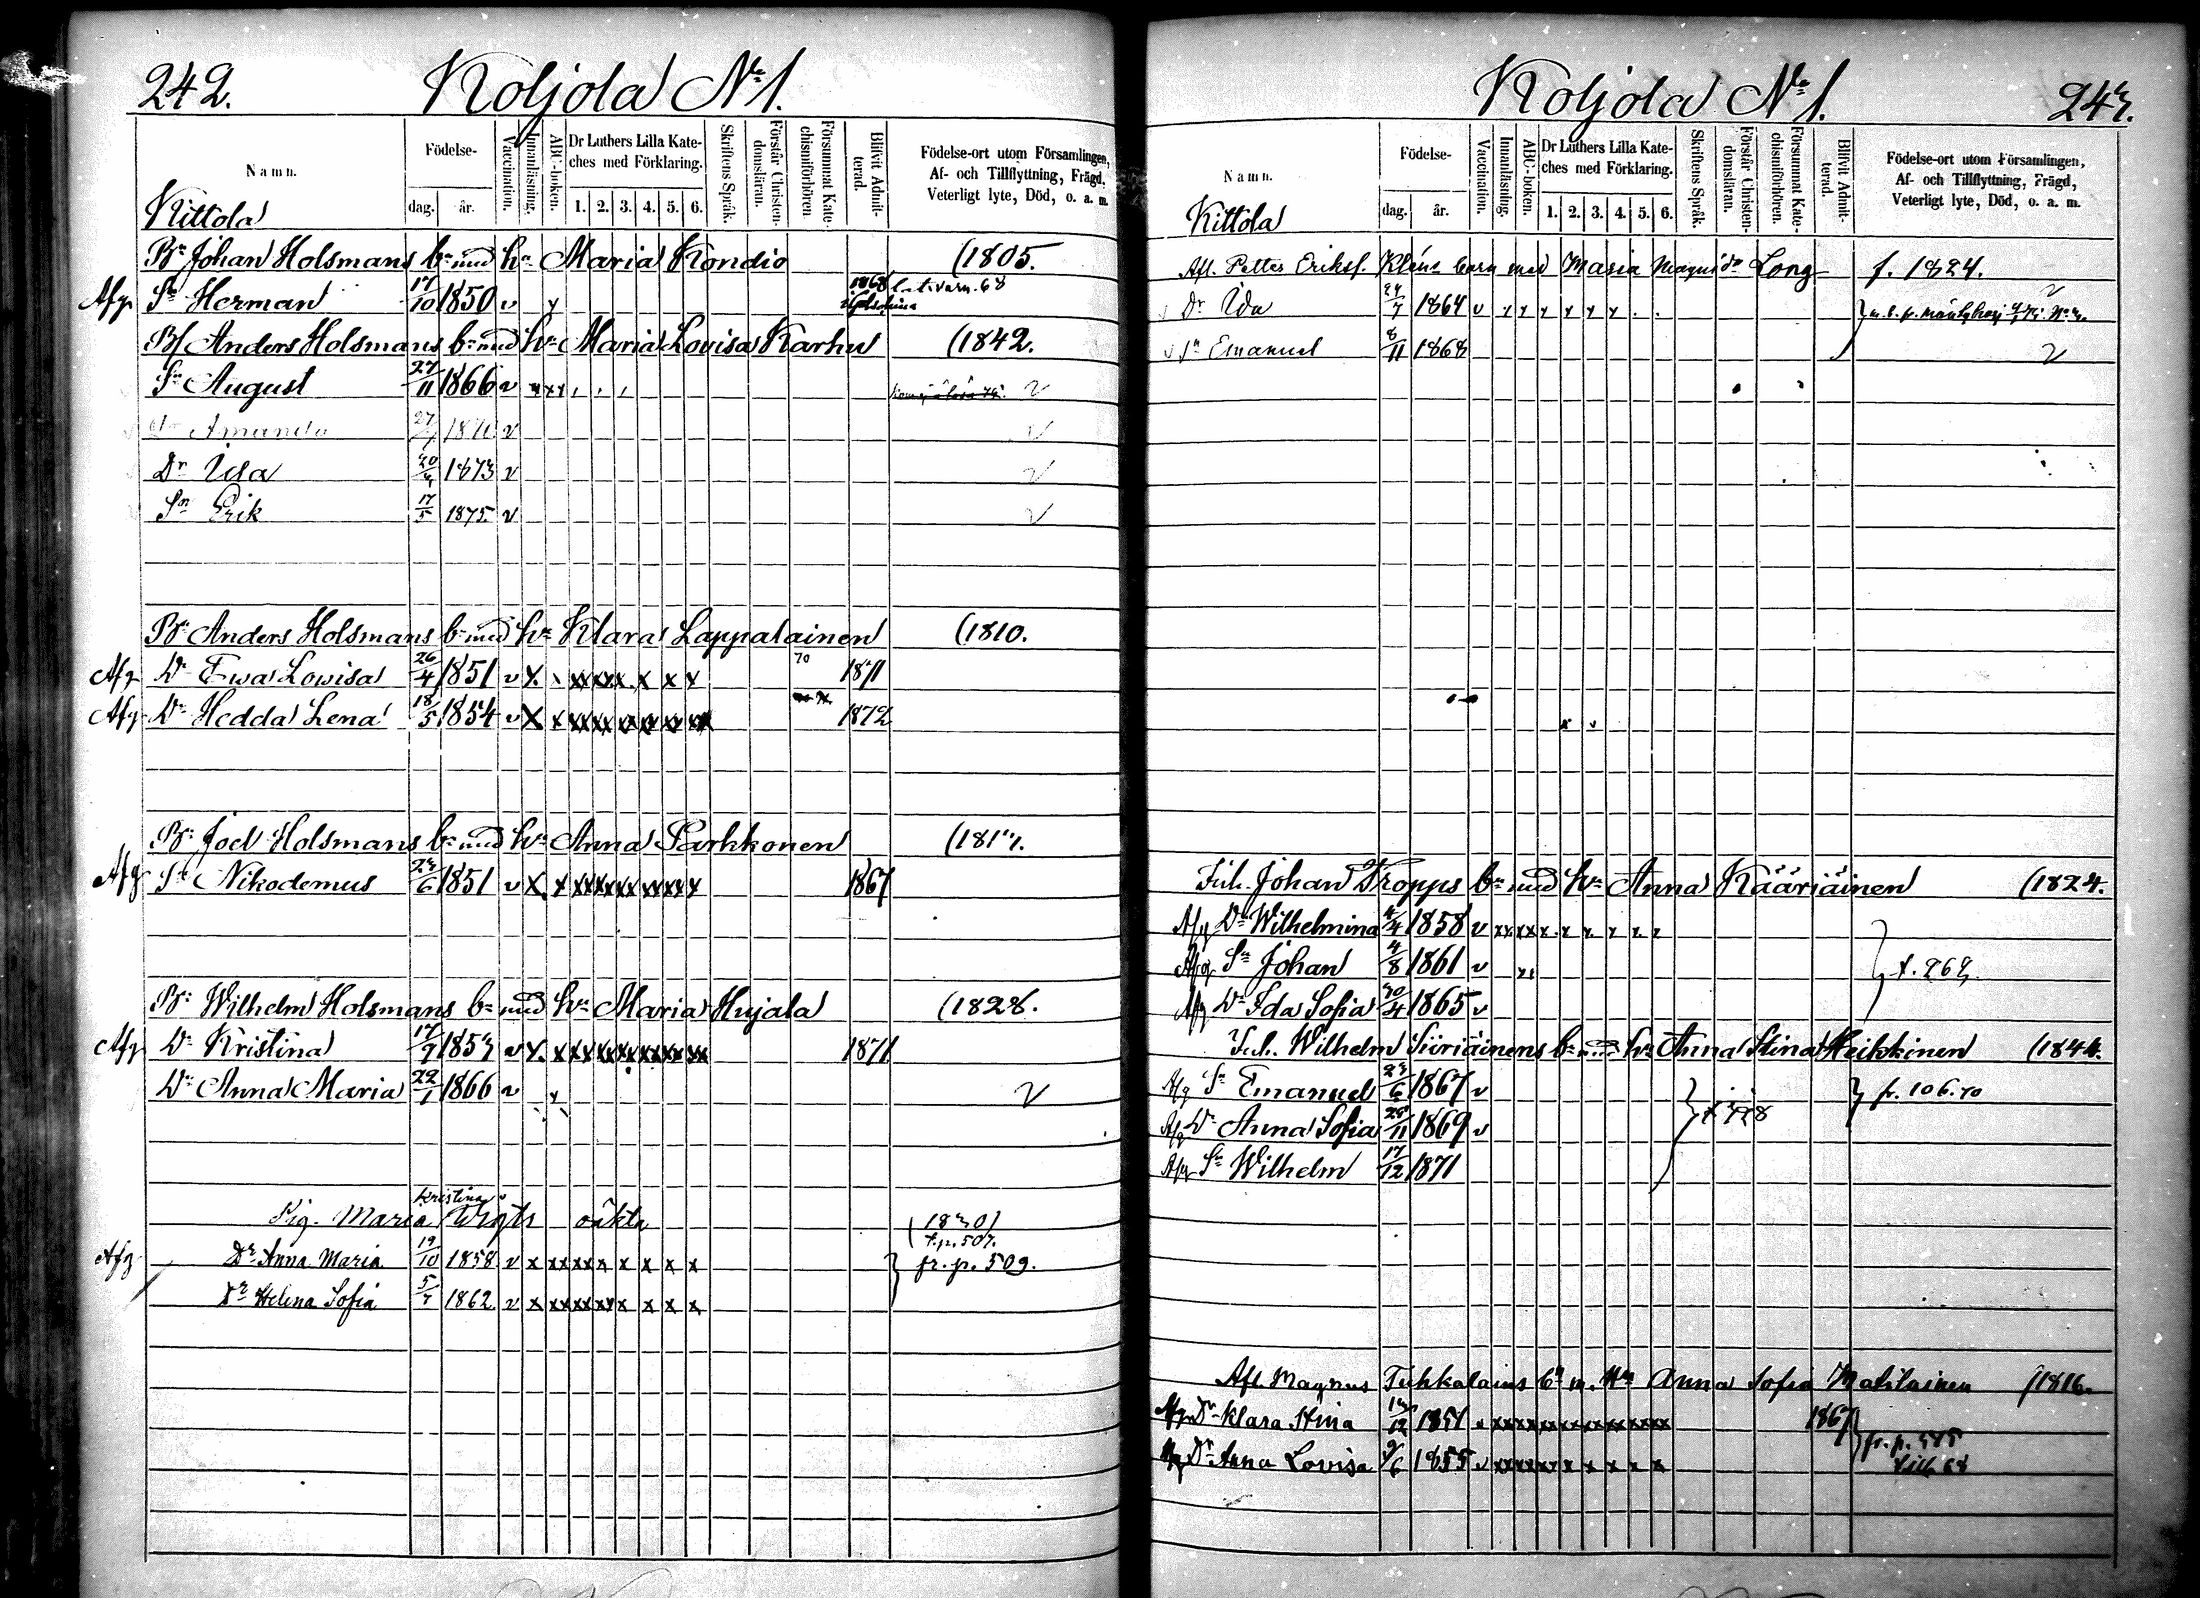 242. Koljola No 1.
Namn.
Födelse-
dag. år.
Vaccination.
Innanläsning.
ABC-boken.
Dr Luthers Lilla Kateches med Förklaring.
1. 2. 3. 4. 5. 6.
Skriftens Språk.
Förstår Christendomsläran.
Försummat Katechismiförhören.
Blifvit Admitterad.
Födelse-ort utom Församlingen, Af- och Tillflyttning, Frägd, Veterligt lyte, Död, o. a. m.
Kittola
Br Johan Holsmans bn med hu Maria Kondio (1805.
Afg Sn Herman 17/10 1850 v x 1868
Br Anders Holsmans bn med hu Maria Lovisa Karhu (1842.
Sn August 27/11 1866 v
Dr Amanda 1871 v
Dr Ida 1873 v
Sn Erik 17/5 1875. v
Br Anders Holsmans bn med hu Klara Lappalainen (1810.
Afg Dr Ewa Lowisa 26/4 1851 v x 70 1871
Afg Dr Hedda Lena 18/5 1854 v x 1872
Br Joel Holsmans bn med hu Anna Parkkonen
Afg Sn Nikodemus 23/6 1851 v x 1867
Br Wilhelm Holsmans bn med hu Maria Hujala (1828.
Afg Dr Kristina 1853 v x 1871
Dr Anna Maria 22/1 1866 v
Pig. Maria Kristina oäkta (1830)
Afg Dr Anna Maria 19/10 1858 v x fr. p. 509.
Dr Helena Sofia 5/7 1862 v x
Koljola No 1. 243.
Namn.
Födelse-
dag. år.
Vaccination.
Innanläsning.
ABC-boken.
Dr Luthers Lilla Kateches med Förklaring.
1. 2. 3. 4. 5. 6.
Skriftens Språk.
Förstår Christendomsläran.
Försummat Katechismiförhören.
Blifvit Admitterad.
Födelse-ort utom Församlingen, Af- och Tillflyttning, Frägd, Veterligt lyte, Död, o. a. m.
Kittola
Afl. Petter Eriksf. barn med Maria Long f. 1824.
Dr Ida 1864 v
Sn Emanuel 8/11 1868
Inh. Johan Kropps bn med hu Anna Kääriäinen (1824.
Afg Dr Wilhelmina 4/4 1858 v
Afg Sn Johan 4/8 1861 v
Afg Dr Ida Sofia 30/4 1865 v
Inh. Wilhelm Siiriäinens bn med hu Anna Stina Heikkinen (1844.
Afg Sn Emanuel 23/6 1867 v fr. 106. 70
Afg Dr Anna Sofia 1869 v
Afg Sn Wilhelm 17/12 1871
Afl. Magnus Tuhkalains bn m. Hu Anna Sofia Matilainen (1816.
Afg Dr Klara Stina 1851 v 1867
Afg Dr Anna Lovisa 1855 v fr. p.